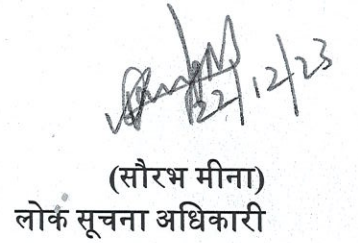 22/12/23
(सौरभ मीना)
लोक सूचना अधिकारी